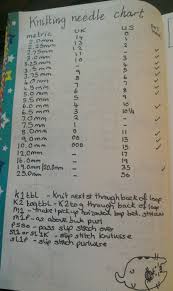 Knitting needle chart
metric UK US
2.0mm 14 0
2.25mm 13 1
2.75mm 12 2
3.0mm 11 -
3.25mm 10 3
3.5mm - 4
3.75mm 9 5
4.0mm 8 6
4.5mm 7 7
5.0mm 6 8
5.5mm 5 9
6.0mm 4 10
6.5mm 3 10½
7.0mm 2 -
7.5mm 1 -
8.0mm 0 11
9.0mm 00 13
10.0mm 000 15
12.0mm - -
16.0mm - -
19.0mm - 35
25.0mm - 50
K1tbl - Knit next st through back of loop
K2togtbl - K2tog through back of loop
M1 - make 1 pick up
M1P - as above but purl
psso - pass slip stitch over
sl1 or sl1K - slip stitch knitwise
sl1P - slip stitch purlwise